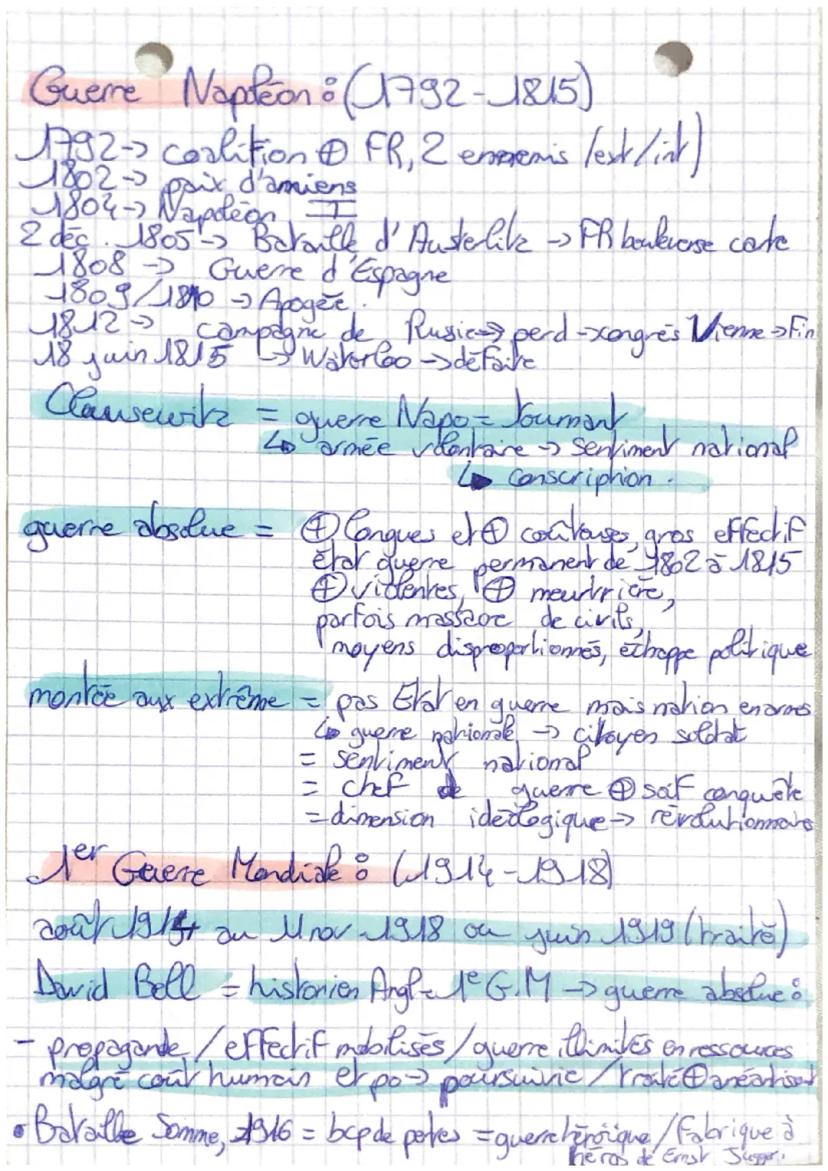 Guerre Napoléon : (1792-1815)
1792 -> coalition ⊕ FR, 2 ennemis (ext/int)
1802 -> paix d'amiens
1804 -> Napoléon I
2 déc. 1805 -> Bataille d'Austerlitz -> FR bouleverse carte
1808 -> Guerre d'Espagne
1809/1810 -> Apogée.
1812 -> campagne de Rusie -> perd -> congrès Vienne -> Fin
18 juin 1815 -> Waterloo -> défaite
Clausewitz = guerre Napo = Tournant
↳ armée volontaire -> sentiment national
↳ conscription.
guerre absolue = ⊕ longues et ⊕ coûteuses, gros effectif
état guerre permanent de 1802 à 1815
⊕ violentes, ⊕ meurtrière,
parfois massacre de civils,
moyens disproportionnés, échappe politique
montée aux extrême = pas Etat en guerre mais nation en armes
↳ guerre nationale -> citoyen soldat
= sentiment national
= chef de guerre ⊕ soif conquête
= dimension idéologique -> révolutionnaire
1er Guerre Mondiale : (1914-1918)
août 1914 au 11 nov 1918 ou juin 1919 (traité)
David Bell = historien Angl = 1e G.M -> guerre absolue :
- propagande / effectif mobilisés / guerre illimités en ressources
malgré coût humain et po -> poursuivie / traité ⊕ anéantissent
• Bataille Somme, 1916 = bcp de pertes = guerre héroïque / Fabrique à
héros de Ernst